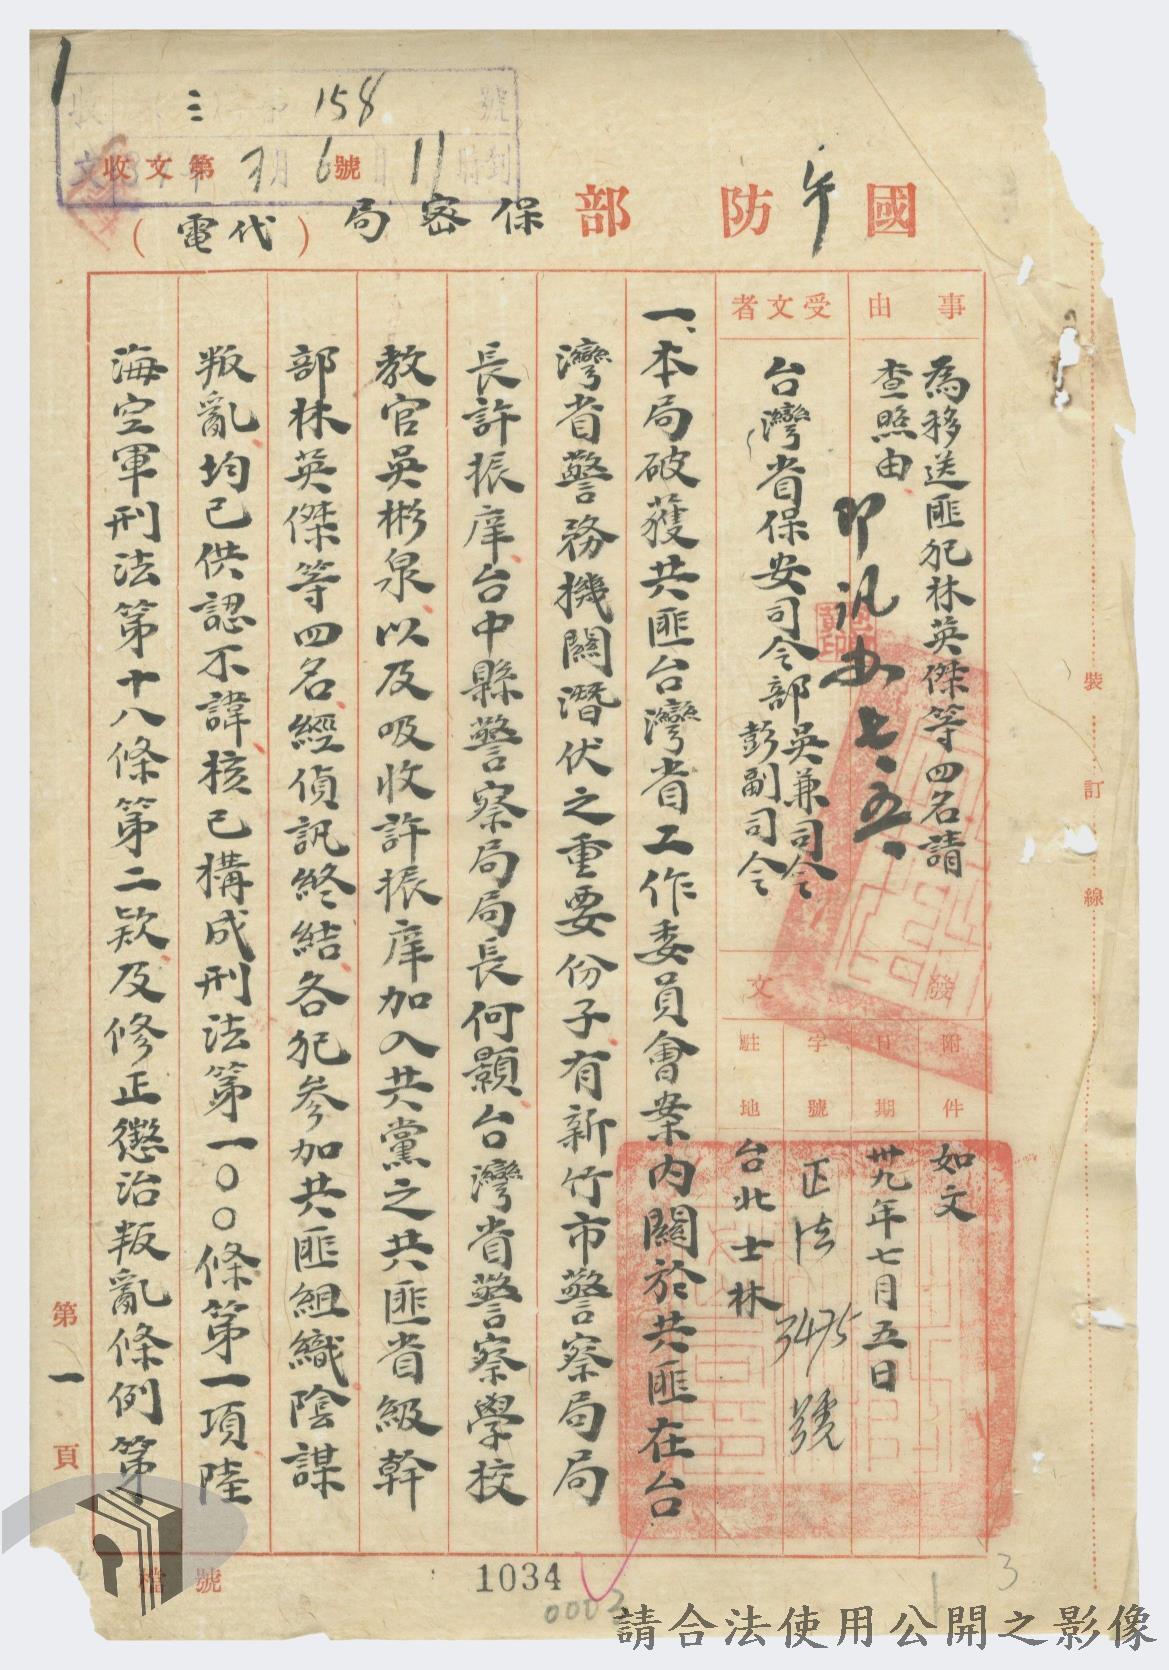 國防部保密局（代電）
收文第 號
158
7月6 11
事由
為移送匪犯林英傑等四名請
查照由
受文者
台灣省保安司令部吳兼司令
彭副司令
即訊辦 七、五、
發文
附件
如文
日期
卅九年七月五日
字號
正法3475號
駐地
台北士林
一、本局破獲共匪台灣省工作委員會案內關於共匪在台
灣省警務機關潛伏之重要份子有新竹市警察局局
長許振庠台中縣警察局局長何顯台灣省警察學校
教官吳彬泉以及吸收許振庠加入共黨之共匪省級幹
部林英傑等四名經偵訊終結各犯參加共匪組織陰謀
叛亂均已供認不諱核已構成刑法第一〇〇條第一項陸
海空軍刑法第十八條第二款及修正懲治叛亂條例第
第一頁
裝訂線
檔號
1034
0002
3
請合法使用公開之影像